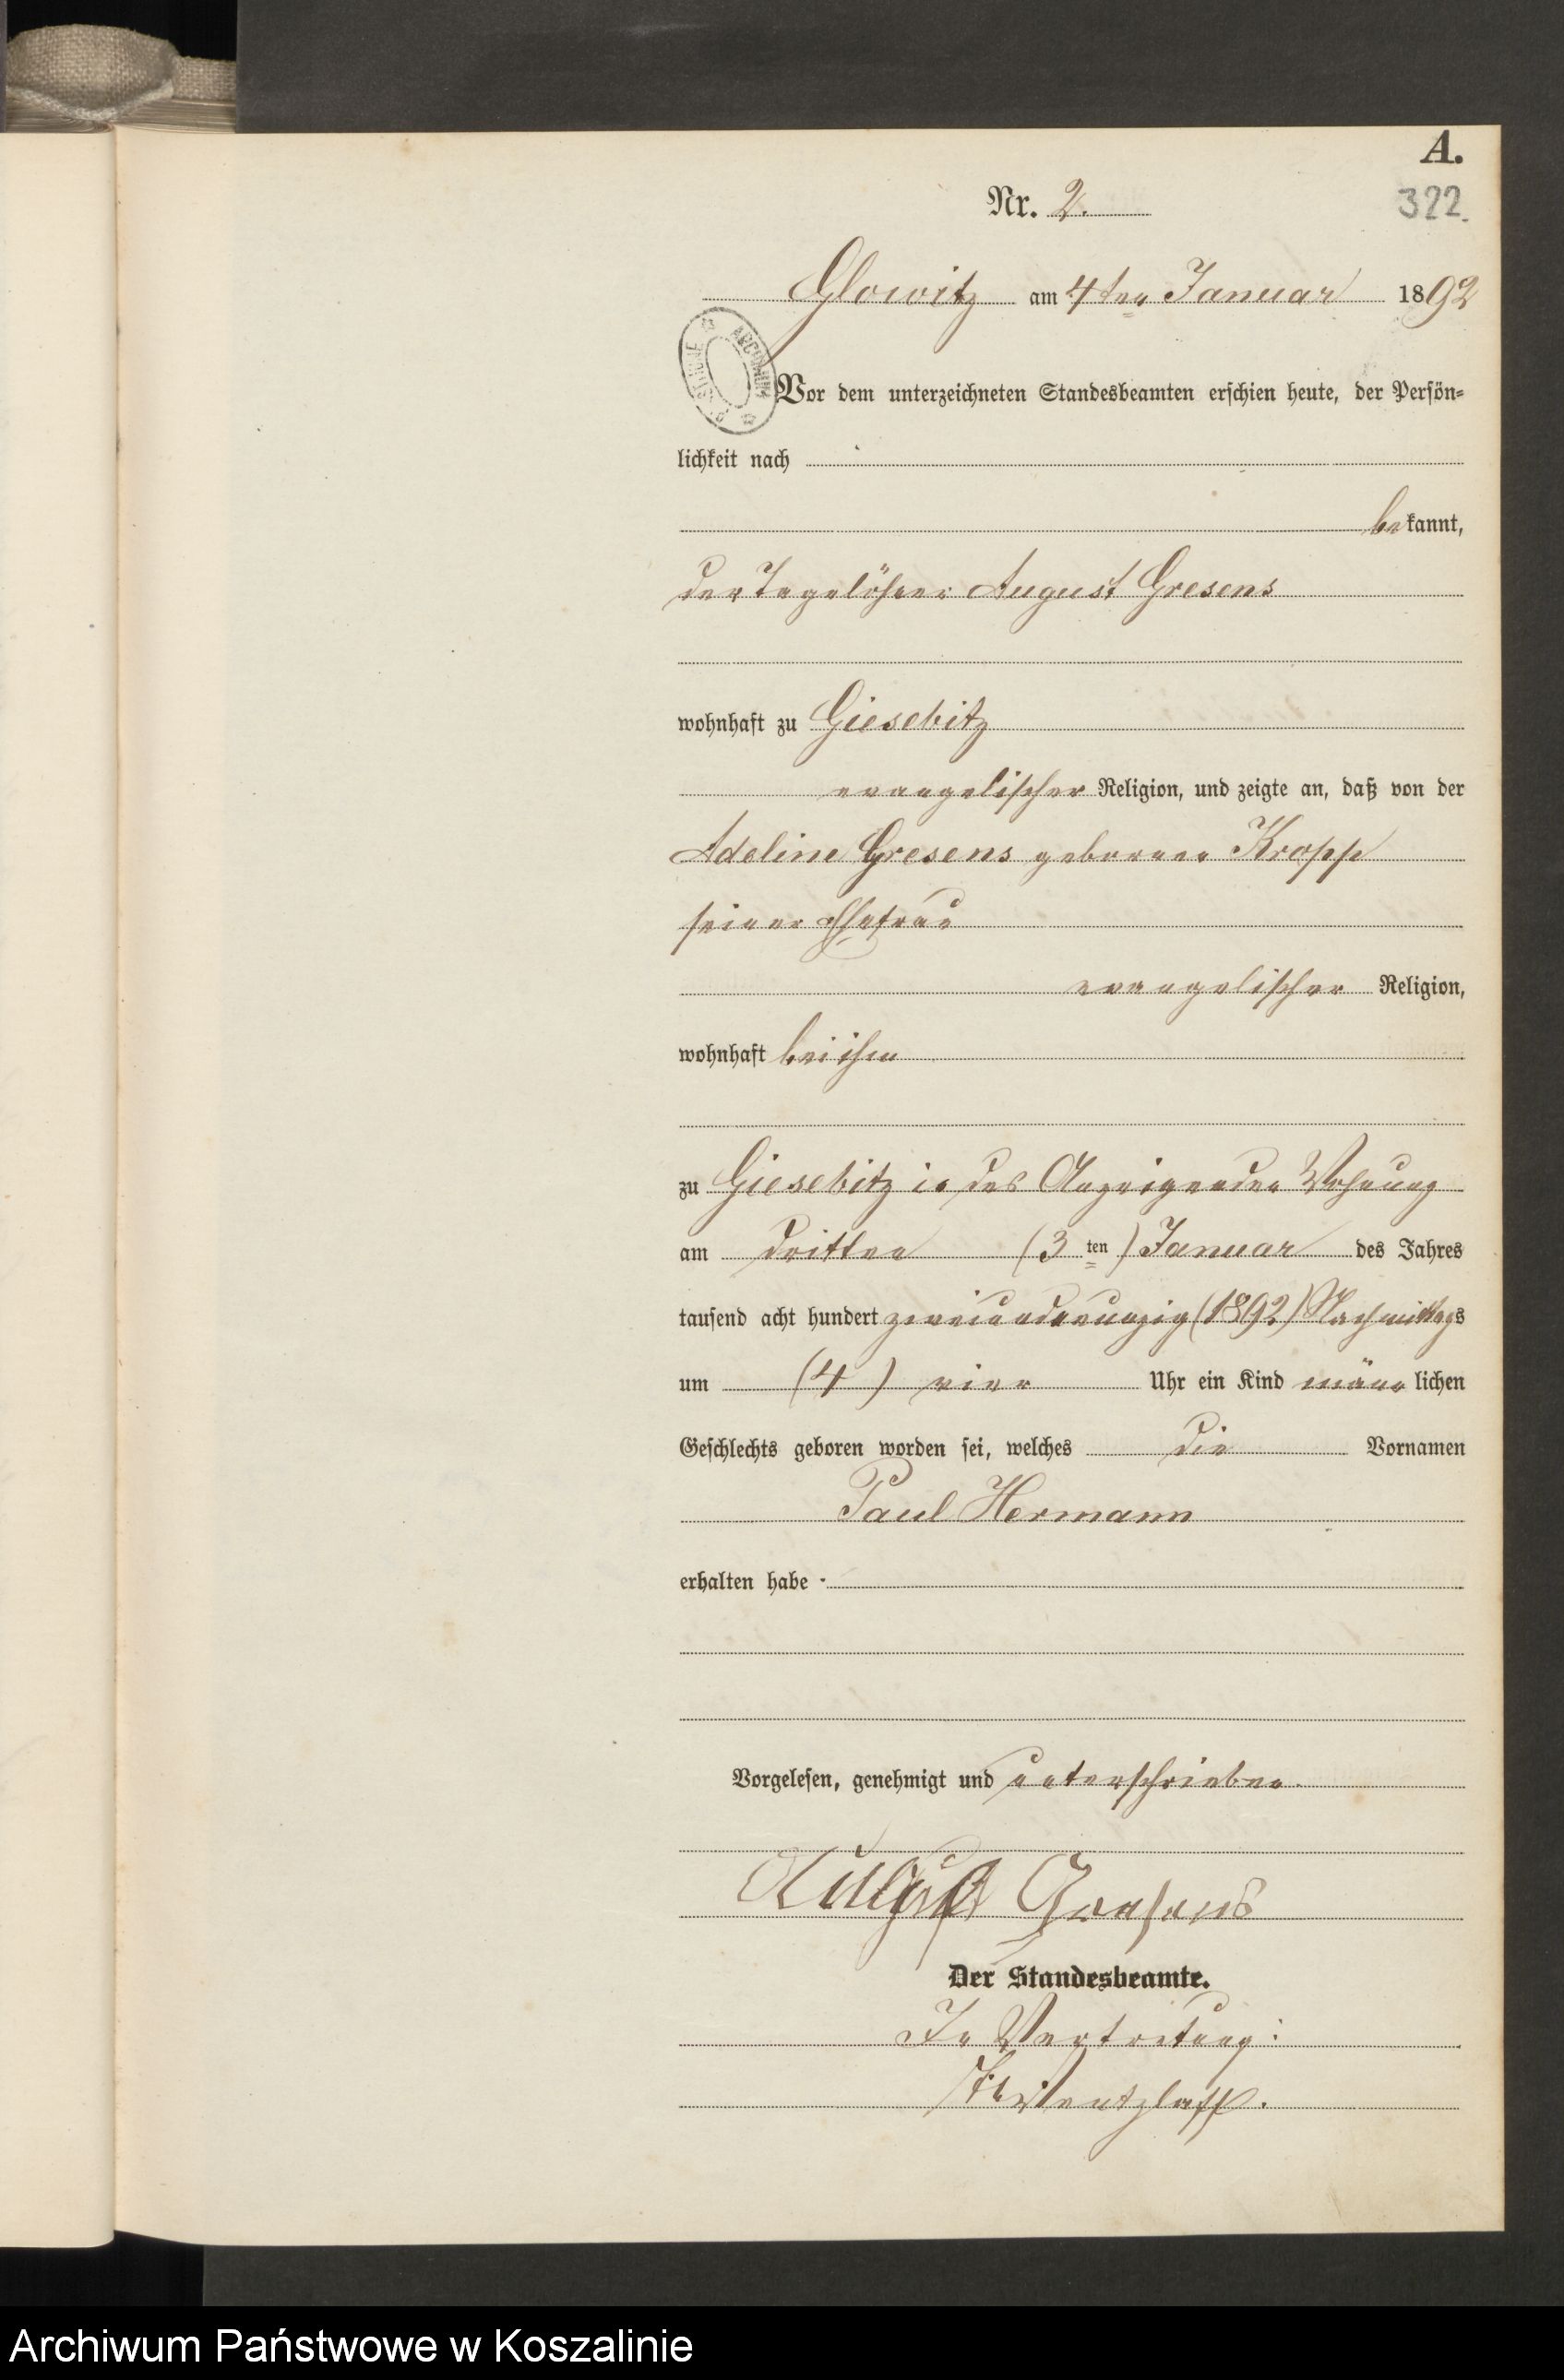 A.
Nr. 2.
322.
Glowitz am 4ten Januar 1892
Vor dem unterzeichneten Standesbeamten erschien heute, der Persön-
lichkeit nach
bekannt,
der Tagelöhner August Gresens
wohnhaft zu Giesebitz
evangelischer Religion, und zeigte an, daß von der
Adeline Gresens geborenen Kropp
seiner Ehefrau
evangelischer Religion,
wohnhaft bei ihm
zu Giesebitz in des Anzeigenden Wohnung
am dritten (3 ten) Januar des Jahres
tausend acht hundert zweiundneunzig (1892) Nachmittags
um (4) vier Uhr ein Kind männlichen
Geschlechts geboren worden sei, welches die Vornamen
Paul Hermann
erhalten habe
Vorgelesen, genehmigt und unterschrieben.
August Gresens
Der Standesbeamte.
In Vertretung:
Archiwum Państwowe w Koszalinie